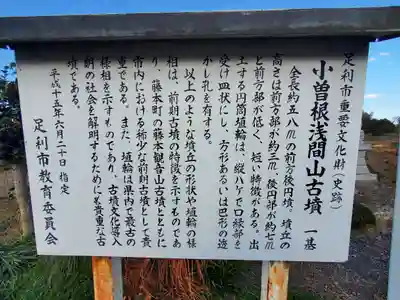 足利市重要文化財(史跡)
小曽根浅間山古墳 一基
全長約五八mの前方後円墳。墳丘の
高さは前方部が約三m、後円部が約七m
と前方部が低く、短い特徴がある。出
土する円筒埴輪は、縦ハケで口縁部を
受け皿状にし、方形あるいは巴形の透
かし孔を有する。
以上のような墳丘の形状や埴輪の様
相は、前期古墳の特徴を示すものであ
り、藤本町の藤本観音山古墳とともに
市内における稀少な前期古墳として貴
重である。また、埴輪は県内で最古の
様相を示すものであり、古墳文化導入
期の社会を解明するためにも貴重な古
墳である。
平成十五年六月二十日 指定
足利市教育委員会